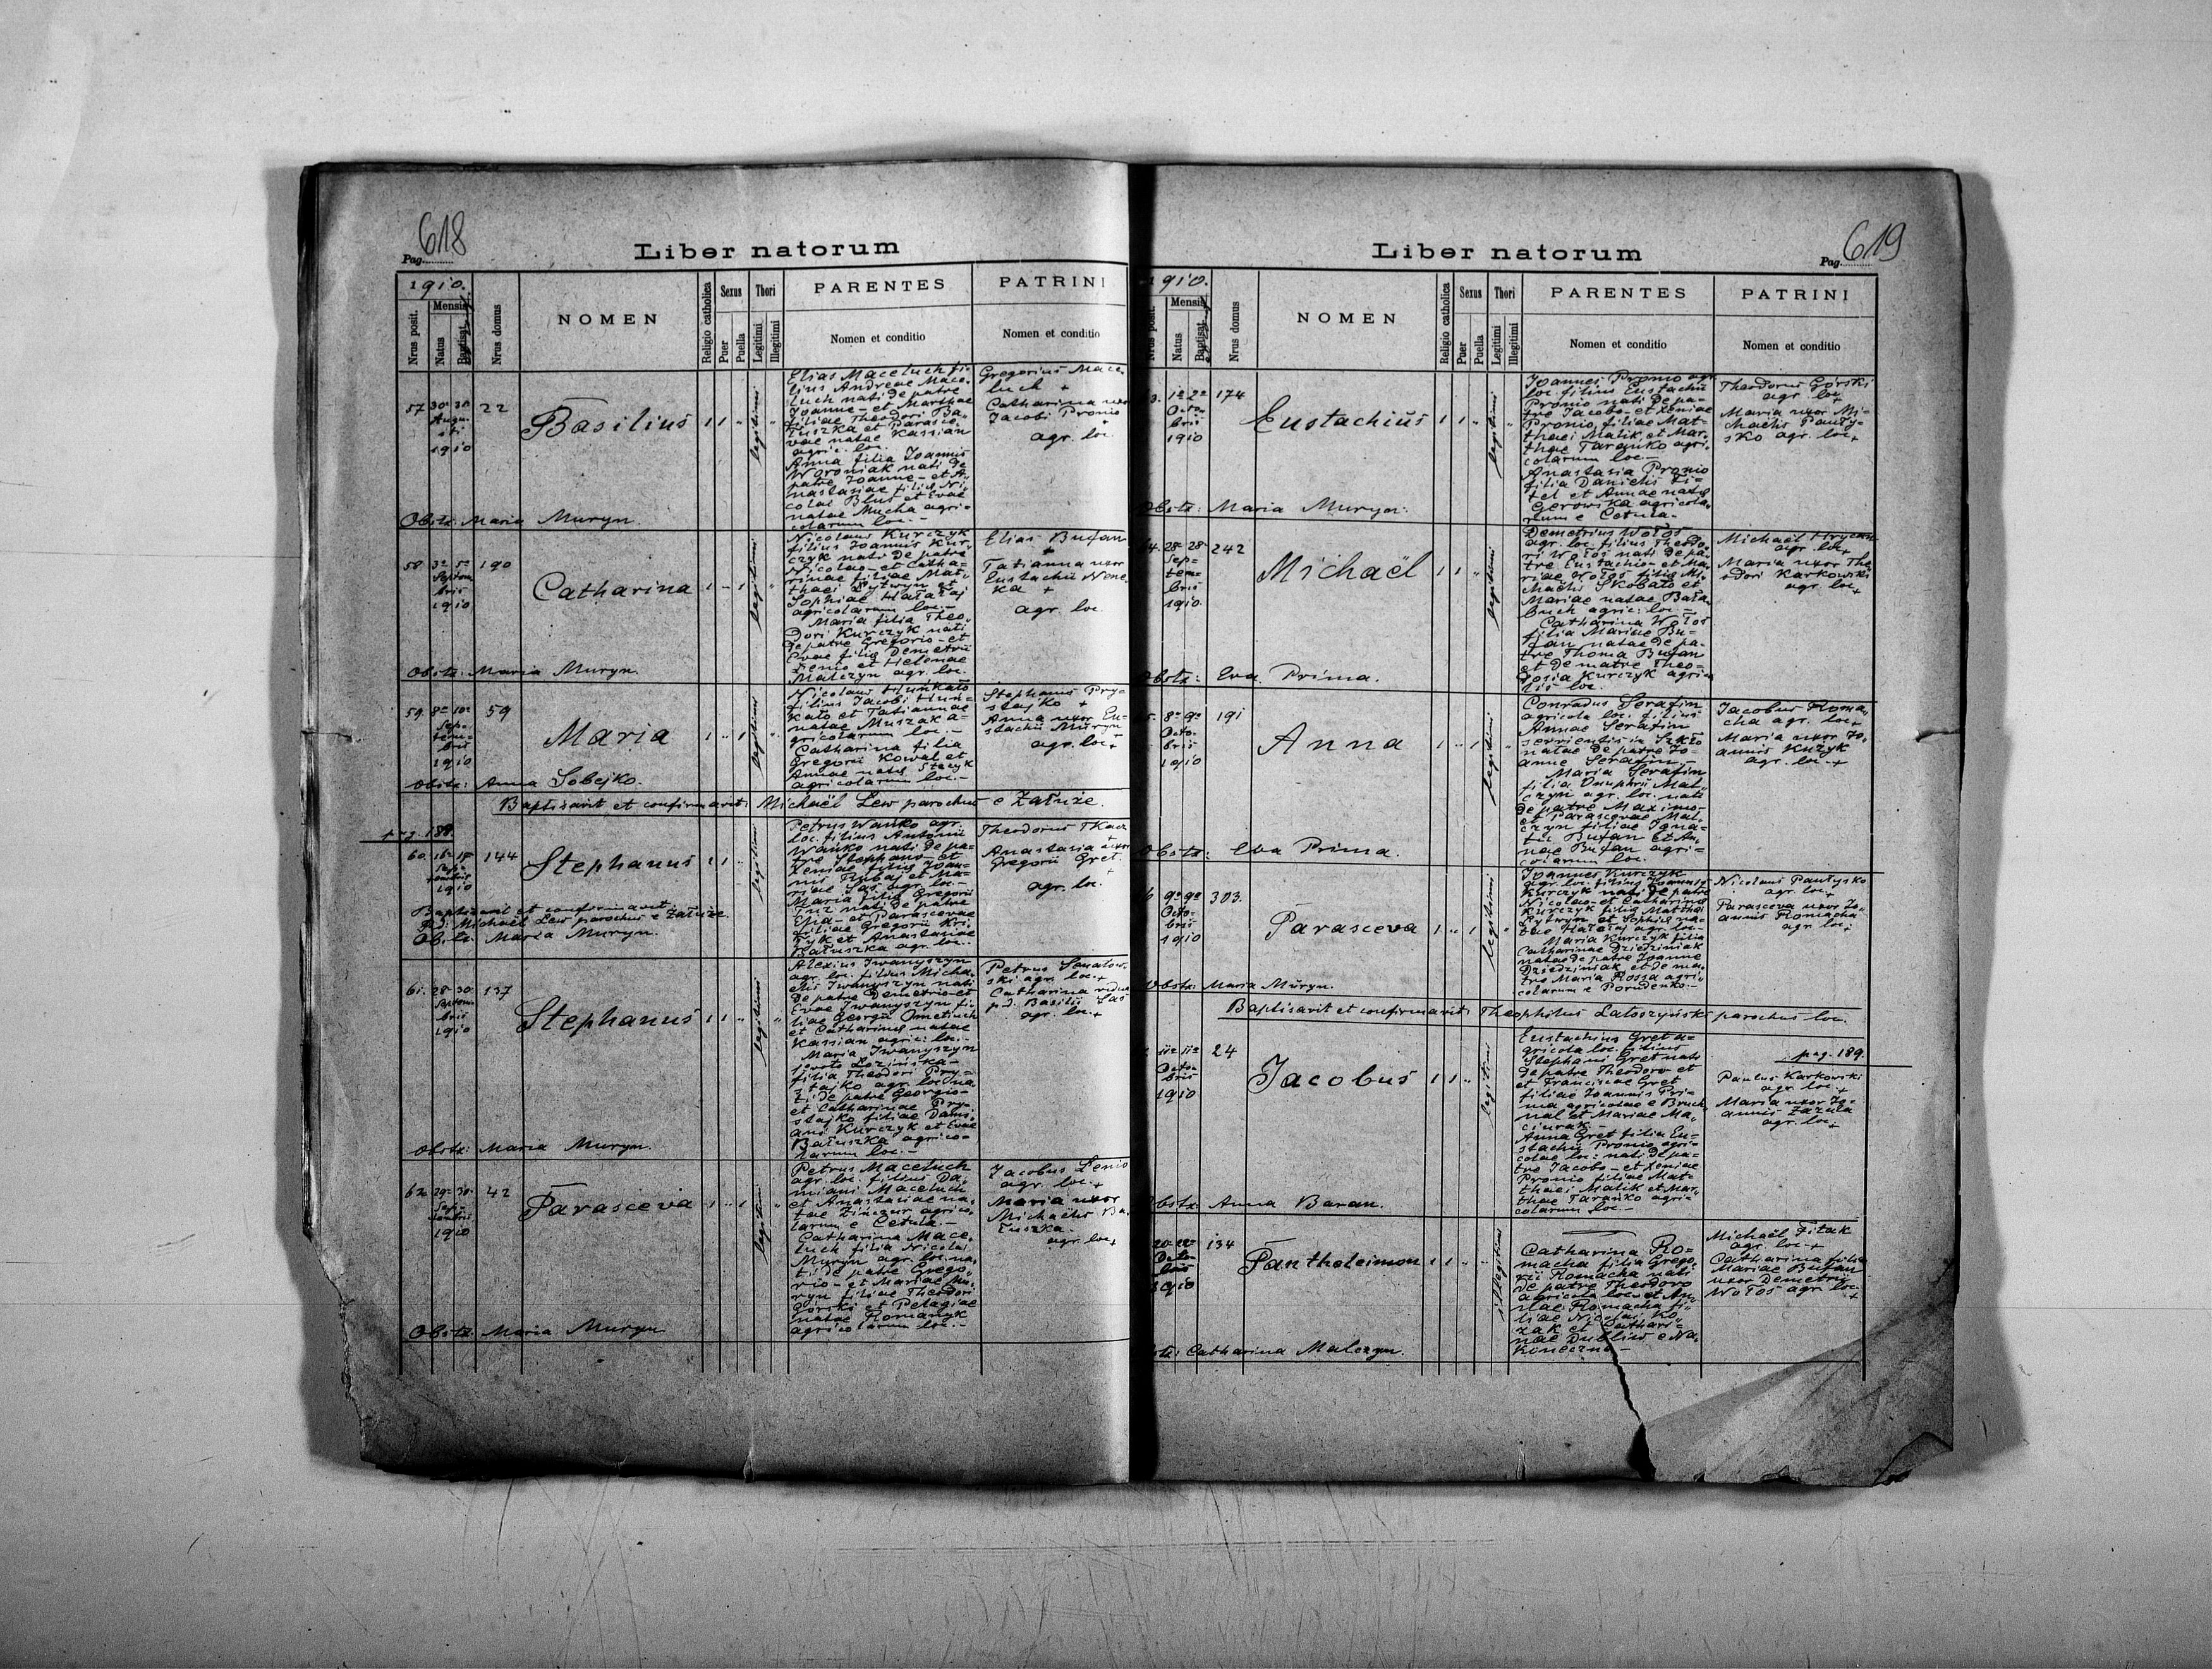 618
Pag.
Liber natorum
1910.
Nrus posit.
Mensis
Natus
Baptisat.
Nrus domus
NOMEN
Religio catholica
Sexus
Puer
Puella
Thori
Legitimi
Illegitimi
PARENTES
Nomen et conditio
PATRINI
Nomen et conditio
57 30ª 30
Augu-
sti
1910
22
Basilius
1 1 " legitimi "
Elias Maceluch fi-
lius Andreae Mace-
luch nati de patre
Joanne - et Marthae
filiae Theodori Ba-
łuszka et Parasce-
vae natae Kassian
agric. loc.
Anna filia Joannis
Woroniak nati de
patre Joanne - et A-
nastasiae filia Ni-
colai Blus et Evae
natae Mucha agri-
colarum loc. -
Gregorius Mace-
luch +
Catharina uxor
Jacobi Pronio
agr. loc.
Obstx: Maria Muryn.
58 3ª 5ª
Septem
bris
1910
190
Catharina
1 - 1 legitimi "
Nicolaus Kurczyk
filius Joannis Kur-
czyk nati de patre
Nicolao - et Catha-
rinae filiae Mat-
thaei Łytwyn et
Sophiae Hałataj
agricolarum loc. -
Maria filia Theo-
dori Kurczyk nati
de patre Gregorio - et
Evae filia Demetrii
Denio et Helenae
Malczyn agr. loc.
Elias Bufan
+
Tatianna uxor
Eustachii None-
ka +
agr. loc.
Obstx: Maria Muryn.
59. 8ª 10ª
Sep-
tem-
bris
1910
59
Maria
1 " 1 legitimi "
Nicolaus Huńkało
filius Jacobi Huń-
kało et Tatiannae
natae Muszak a-
gricolarum loc. -
Catharina filia
Gregorii Kowal et
Annae natae Stecyk
agricolarum loc. -
Stephanus Pry-
stajko +
Anna uxor Eu-
stachii Muryn
agr. loc. +
Obstx: Anna Sobejko.
Baptisavit et confirmavit: Michaël Lew parochus e Załuże.
pag. 189.
60. 16ª 17ª
Sep-
tembris
1910
144
Stephanus
1 1 " legitimi "
Petrus Wańko agr.
loc. filius Antonii
Wańko nati de pa-
tre Stephano - et
Xeniae filiae Joan-
nis Hubaj et Ma-
riae Sas agr. loc. -
Maria filia Gregorii
nati de patre
Elia - et Parascevae
filiae Gregorii Kri-
tyk et Anastasiae
Bałuszka agr. loc. -
Theodorus Tkacz
+
Anastasia uxor
Gregorii Gret.
+
agr. loc.
Baptisavit et confirmavit:
Michaël Lew parochus e Załuże.
Obstx: Maria Muryn.
61. 28ª 30ª
Septem
bris
1910
137
Stephanus
1 1 " legitimi "
Alexius Iwanyszyn
agr. loc. filius Micha-
elis Iwanyszyn nati
de patre Demetrio - et
Evae Iwanyszyn fi-
liae Georgii Ometiuch
et Catharinae natae
Kassian agric. loc. -
Maria Iwanyszyn
Łozińska -
filia Theodori Pry-
stajko agr. loc. na-
ti de patre Georgio -
et Catharinae Pry-
stajko filiae Dami-
ani Kurczyk et Evae
Bałuszka agrico-
larum loc. -
Petrus Senatow-
ski agr. loc. +
Catharina vidua
p.d. Basilii Sas
agr. loc. +
Obstx: Maria Muryn.
62. 29ª 30ª
Sep-
tembris
1910
42
Parasceva
1 " 1 legitimi "
Petrus Maceluch
agr. loc. filius Da-
miani Maceluch
et Anastasiae na-
tae Zinczur agrico-
larum e Cetula. -
Catharina Mace-
luch filia Nicolai
Muryn agr. loc. na-
ti de patre Grego-
rio - et Mariae Mu-
ryn filiae Theodori
Górski et Pelagiae
natae Romanyk
agricolarum loc. -
Jacobus Denio
agr. loc. +
Maria uxor
Michaelis Ba-
łuszka -
agr. loc. +
Obstx: Maria Muryn.
619
Pag.
Liber natorum
1910.
Nrus posit.
Mensis
Natus
Baptisat.
Nrus domus
NOMEN
Religio catholica
Sexus
Puer
Puella
Thori
Legitimi
Illegitimi
PARENTES
Nomen et conditio
PATRINI
Nomen et conditio
3. 1ª 2ª
Octo-
bris
1910
174
Eustachius
1 1 " legitimi "
Joannes Pronio agr.
loc. filius Eustachii
Pronio nati de pa-
tre Jacobo - et Xeniae
Pronio, filiae Mat-
thaei Malik et Mar-
thae Tarańko agri-
colarum loc. -
Anastasia Pronio
filia Danielis Fi-
tel et Annae natae
Gerowska agricola-
rum e Cetula. -
Theodorus Górski
agr. loc. +
Maria uxor Mi-
chaelis Pauły-
sko agr. loc. +
Obstx: Maria Muryn.
4. 28ª 28ª
Sep-
tem-
bris
1910.
242
Michaël
1 1 " legitimi
Demetrius Wołos
agr. loc. filius Theodo-
ri Wołos nati de pa-
tre Eustachio - et Ma-
riae Wołos filia Mi-
chaelis Skobało et
Mariae natae Bała-
buch agric. loc. -
Catharina Wołos
filia Mariae Bu-
fan natae de pa-
tre Thoma Bufan
et de matre Theo-
dosia Kurczyk agrico-
lis loc.
Michaël Hrycan
agr. loc. +
Maria uxor The-
odori Karkowski
agr. loc. +
Obstx: Eva Prima.
5. 8ª 9ª
Octo-
bris
1910
191
Anna
1 " 1 legitimi "
Conradus Serafin
agricola loc. filius
Annae Serafin
servientis in Szkło
natae de patre Jo-
anne Serafin. -
Maria Serafin
filia Onuphrii Mal-
czyn agr. loc. nati
de patre Maximo -
et Parascevae Mal-
czyn filiae Igna-
tii Bufan et An-
nae Bufan agri-
colarum loc.
Jacobus Roma-
cha agr. loc. +
Maria uxor Jo-
annis Kuzyk
agr. loc. +
Obstx: Eva Prima.
6 9ª 9ª
Octo-
bris
1910
303.
Parasceva
1 " 1 legitimi "
Joannes Kurczyk
agr. loc. filius Joannis
Kurczyk nati de patre
Nicolao - et Catharina
Kurczyk filia Matthaei
Łytwyn et Sophia na-
tae Hałataj agr. loc. -
Maria Kurczyk filia
Catharinae Dziedziniak
natae de patre Joanne
Dziedziniak et de ma-
tre Maria Rossa agri-
colarum e Porudenko. -
Nicolaus Paułysko
agr. loc. +
Parasceva uxor Jo-
annis Romacha
agr. loc. +
Obstx: Maria Muryn.
Baptisavit et confirmavit: Theophilus Łatoszyński parochus loc.
11ª 11ª
Octo-
bris
1910
24
Jacobus
1 1 " legitimi
Eustachius Gret a-
gricola loc. filius
Stephani Gret nati
de patre Theodoro et
et Franciscae Gret
filiae Joannis Pri-
ma agricolae e Bruch-
nal et Mariae Ma-
ciurak -
Anna Gret filia Eu-
stachii Pronio agri-
colae loc. nati de pa-
tre Jacobo - et Xeniae
Pronio filiae Mat-
thaei Malik et Mar-
thae Tarańko agri-
colarum loc. -
pag. 189.
Paulus Karkowski
agr. loc. +
Maria uxor Jo-
annis Zazula
agr. loc. +
Obstx: Anna Baran.
20ª 22ª
Octo-
bris
1910
134
Pantheleimon
1 1 " " illegitimi
Catharina Ro-
macha filia Grego-
rii Romacha nati
de patre Theodoro
agricola loc. et An-
nae Romacha fi-
liae Nicolai Ko-
zak et Cathari-
nae Dublica e Na-
koneczne -
Michaël Fitak
agr. loc. +
Catharina filia
Mariae Bufan
uxor Demetrii
Wołos agr. loc. +
Obstx: Catharina Malczyn.